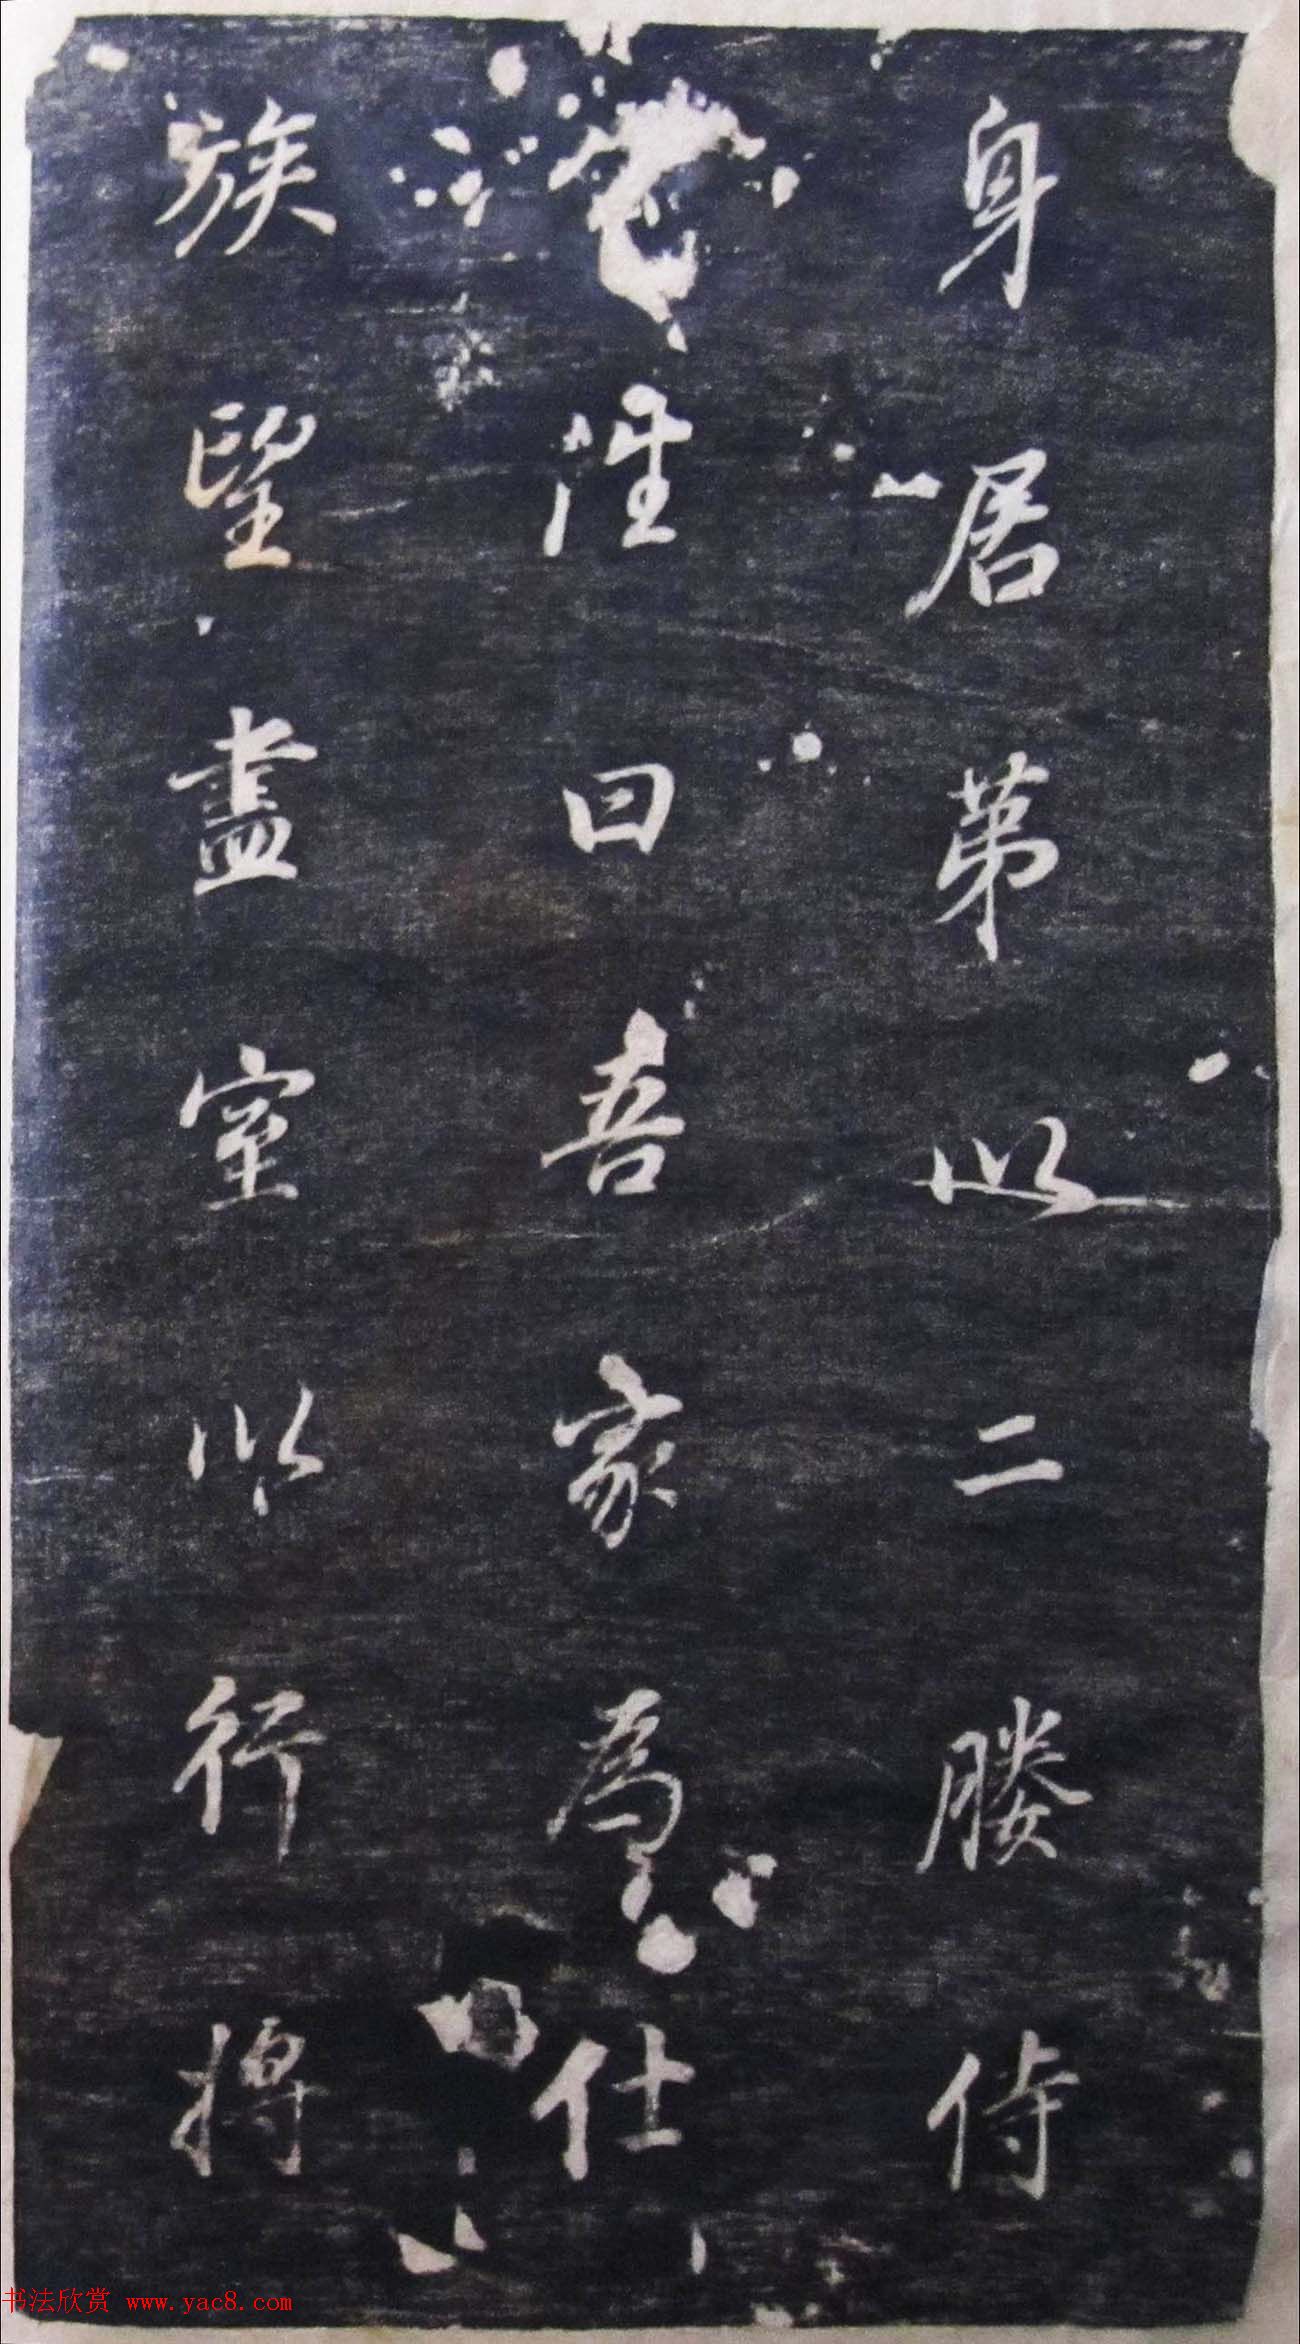 身居苐以二媵侍
性曰吾家為仕
族望盡室以行將
书法欣赏 www.yac8.com